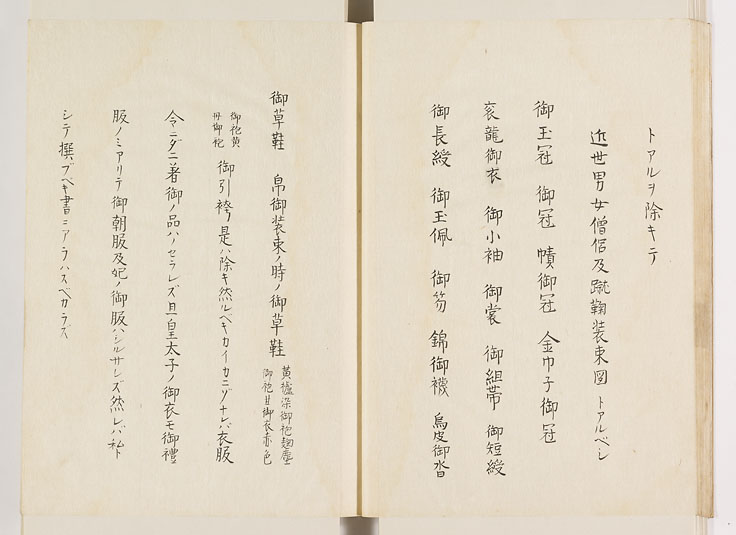 トアルヲ除キテ
近世男女僧侶及蹴鞠装束図 トアルベシ
御玉冠 御冠 幘御冠 金巾子御冠
袞龍御衣 御小袖 御裳 御組帯 御短綬
御長綬 御玉佩 御笏 錦御襪 烏皮御沓
御草鞋 帛御装束ノ時ノ御草鞋 黄櫨染御袍麹塵
御袍甘御衣赤色
御袍黄
丹御袍 御引袴 是ハ除キ然ルベキカイカニゾナレバ衣服
令ニダニ著御ノ品ハノセラレズ且皇太子ノ御衣モ御禮
服ノミアリテ御朝服及妃ノ御服ハシルサレズ然レバ私ニ
シテ撰ブベキ書ニアラハスベカラズ